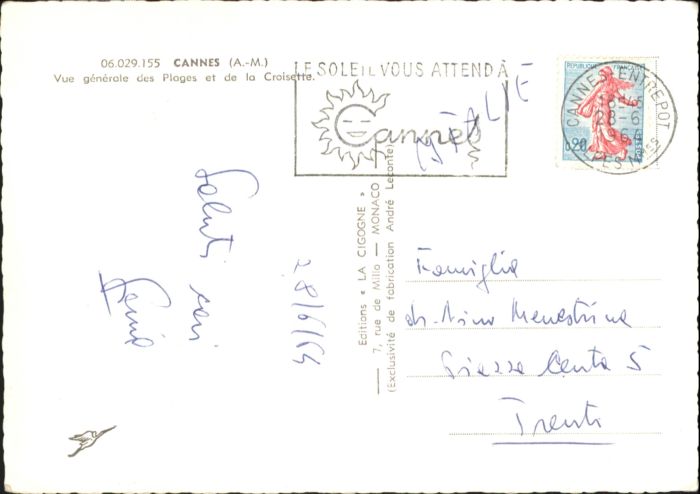 06.029.155 CANNES (A.-M.)
Vue générale des Plages et de la Croisette.
LE SOLEIL VOUS ATTEND À
Cannes
ITALIE
REPUBLIQUE FRANÇAISE
0,20
POSTES
CANNES-ENTREPOT
28-6
1964
ALPES MMES
Saluti cari
28/6/64
Editions « LA CIGOGNE »
7, rue de Millo — MONACO
(Exclusivité de fabrication André Leconte)
Famiglia
dr. Nino Menestrina
Piazza Centa 5
Trento